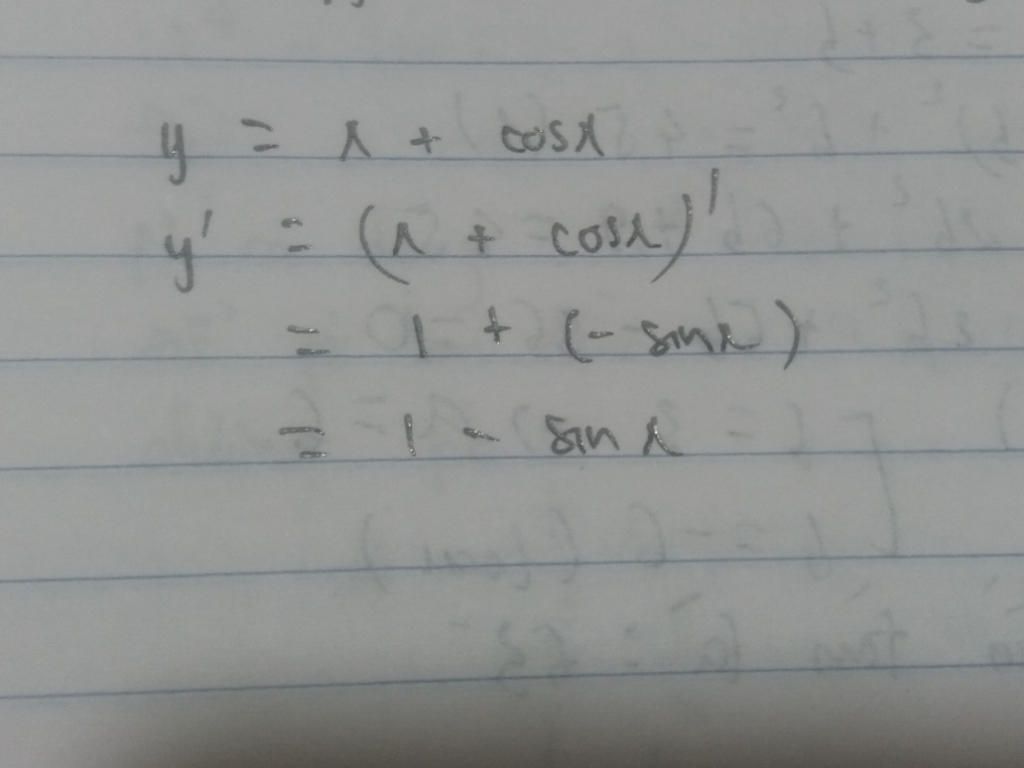 y = x + cosx
y' = (x + cosx)'
= 1 + (- sinx)
= 1 - sin x